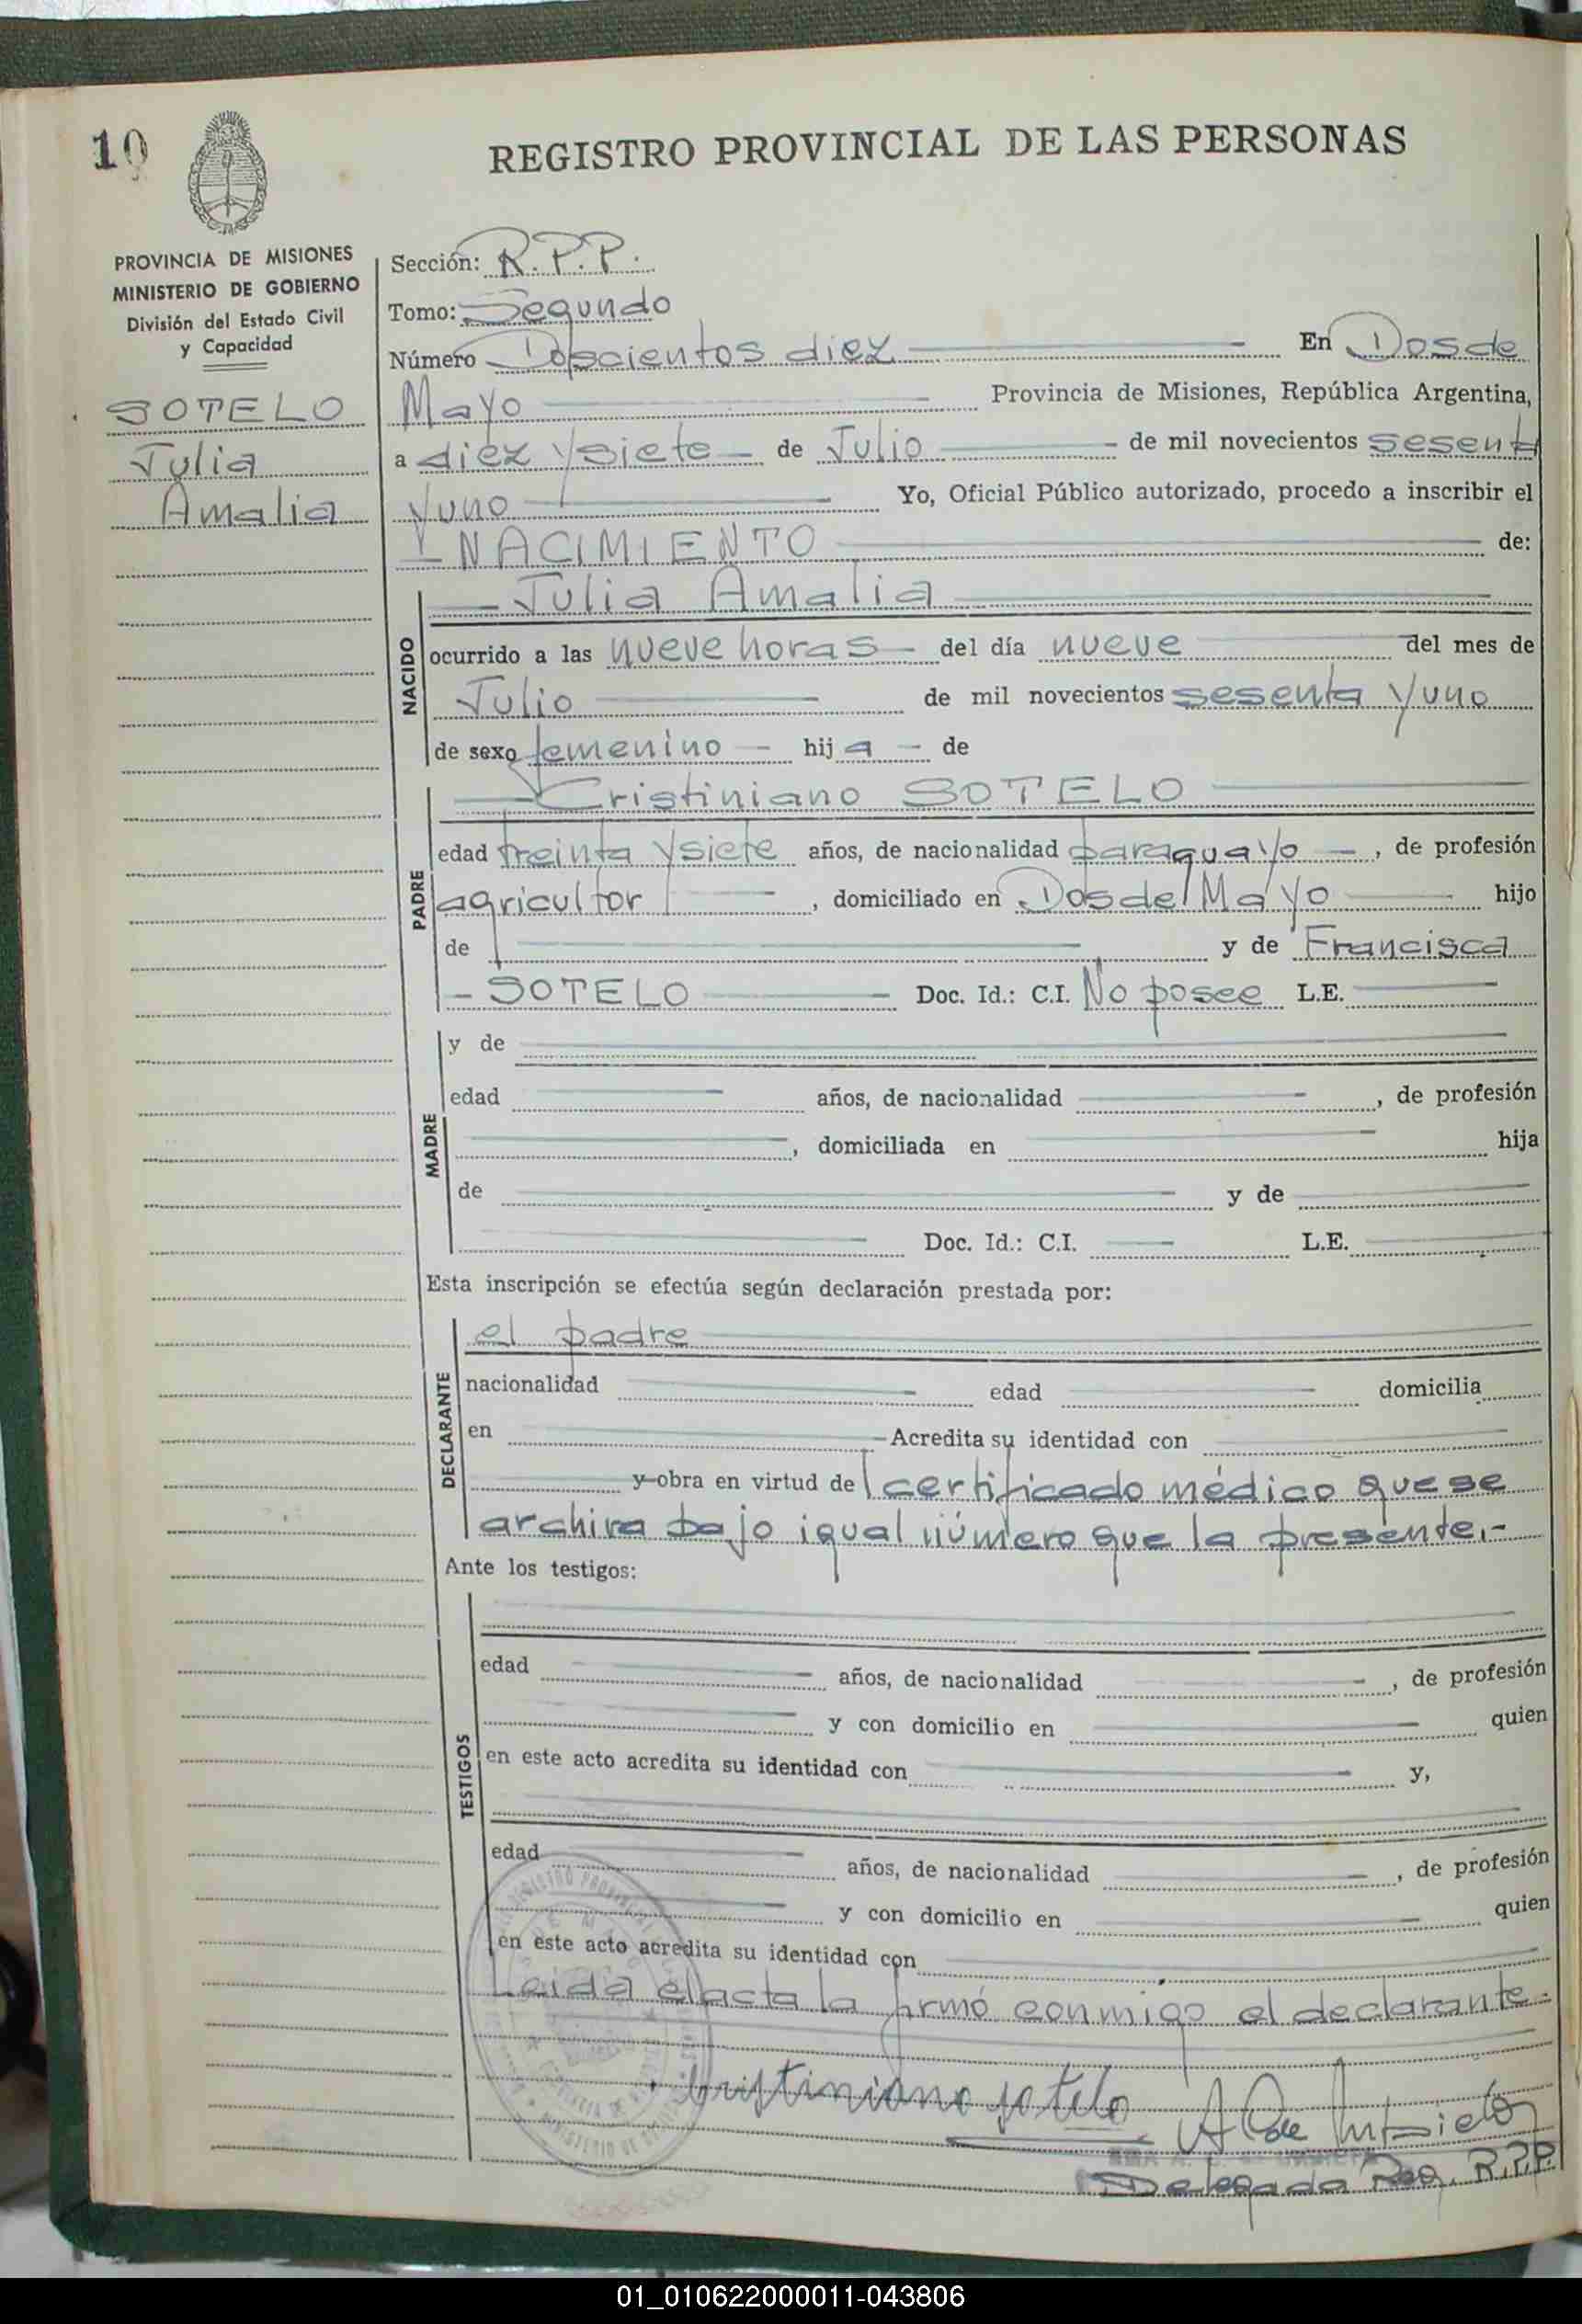 10
REGISTRO PROVINCIAL DE LAS PERSONAS
PROVINCIA DE MISIONES
MINISTERIO DE GOBIERNO
División del Estado Civil
y Capacidad
SOTELO
Julia
Amalia
Sección: R.P.P.
Tomo: Segundo
Número Doscientos diez En Dos de
Mayo Provincia de Misiones, República Argentina,
a diez y siete de Julio de mil novecientos sesenta
y uno Yo, Oficial Público autorizado, procedo a inscribir el
NACIMIENTO de:
NACIDO
Julia Amalia
ocurrido a las nueve horas del día nueve del mes de
Julio de mil novecientos sesenta y uno
de sexo femenino hija de
PADRE
Cristiniano SOTELO
edad treinta y siete años, de nacionalidad paraguayo, de profesión
agricultor, domiciliado en Dos de Mayo hijo
de y de Francisca
SOTELO Doc. Id.: C.I. No posee L.E.
MADRE
y de
edad años, de nacionalidad , de profesión
, domiciliada en hija
de y de
Doc. Id.: C.I. L.E.
Esta inscripción se efectúa según declaración prestada por:
DECLARANTE
el padre
nacionalidad edad domicilia
en Acredita su identidad con
y obra en virtud de certificado médico que se
archiva bajo igual número que la presente.-
Ante los testigos:
TESTIGOS
edad años, de nacionalidad , de profesión
y con domicilio en quien
en este acto acredita su identidad con y,
edad años, de nacionalidad , de profesión
y con domicilio en quien
en este acto acredita su identidad con
Leida el acta la firmó conmigo el declarante.-
Cristiniano sotelo
Delegada Reg. R.P.P.
01_010622000011-043806